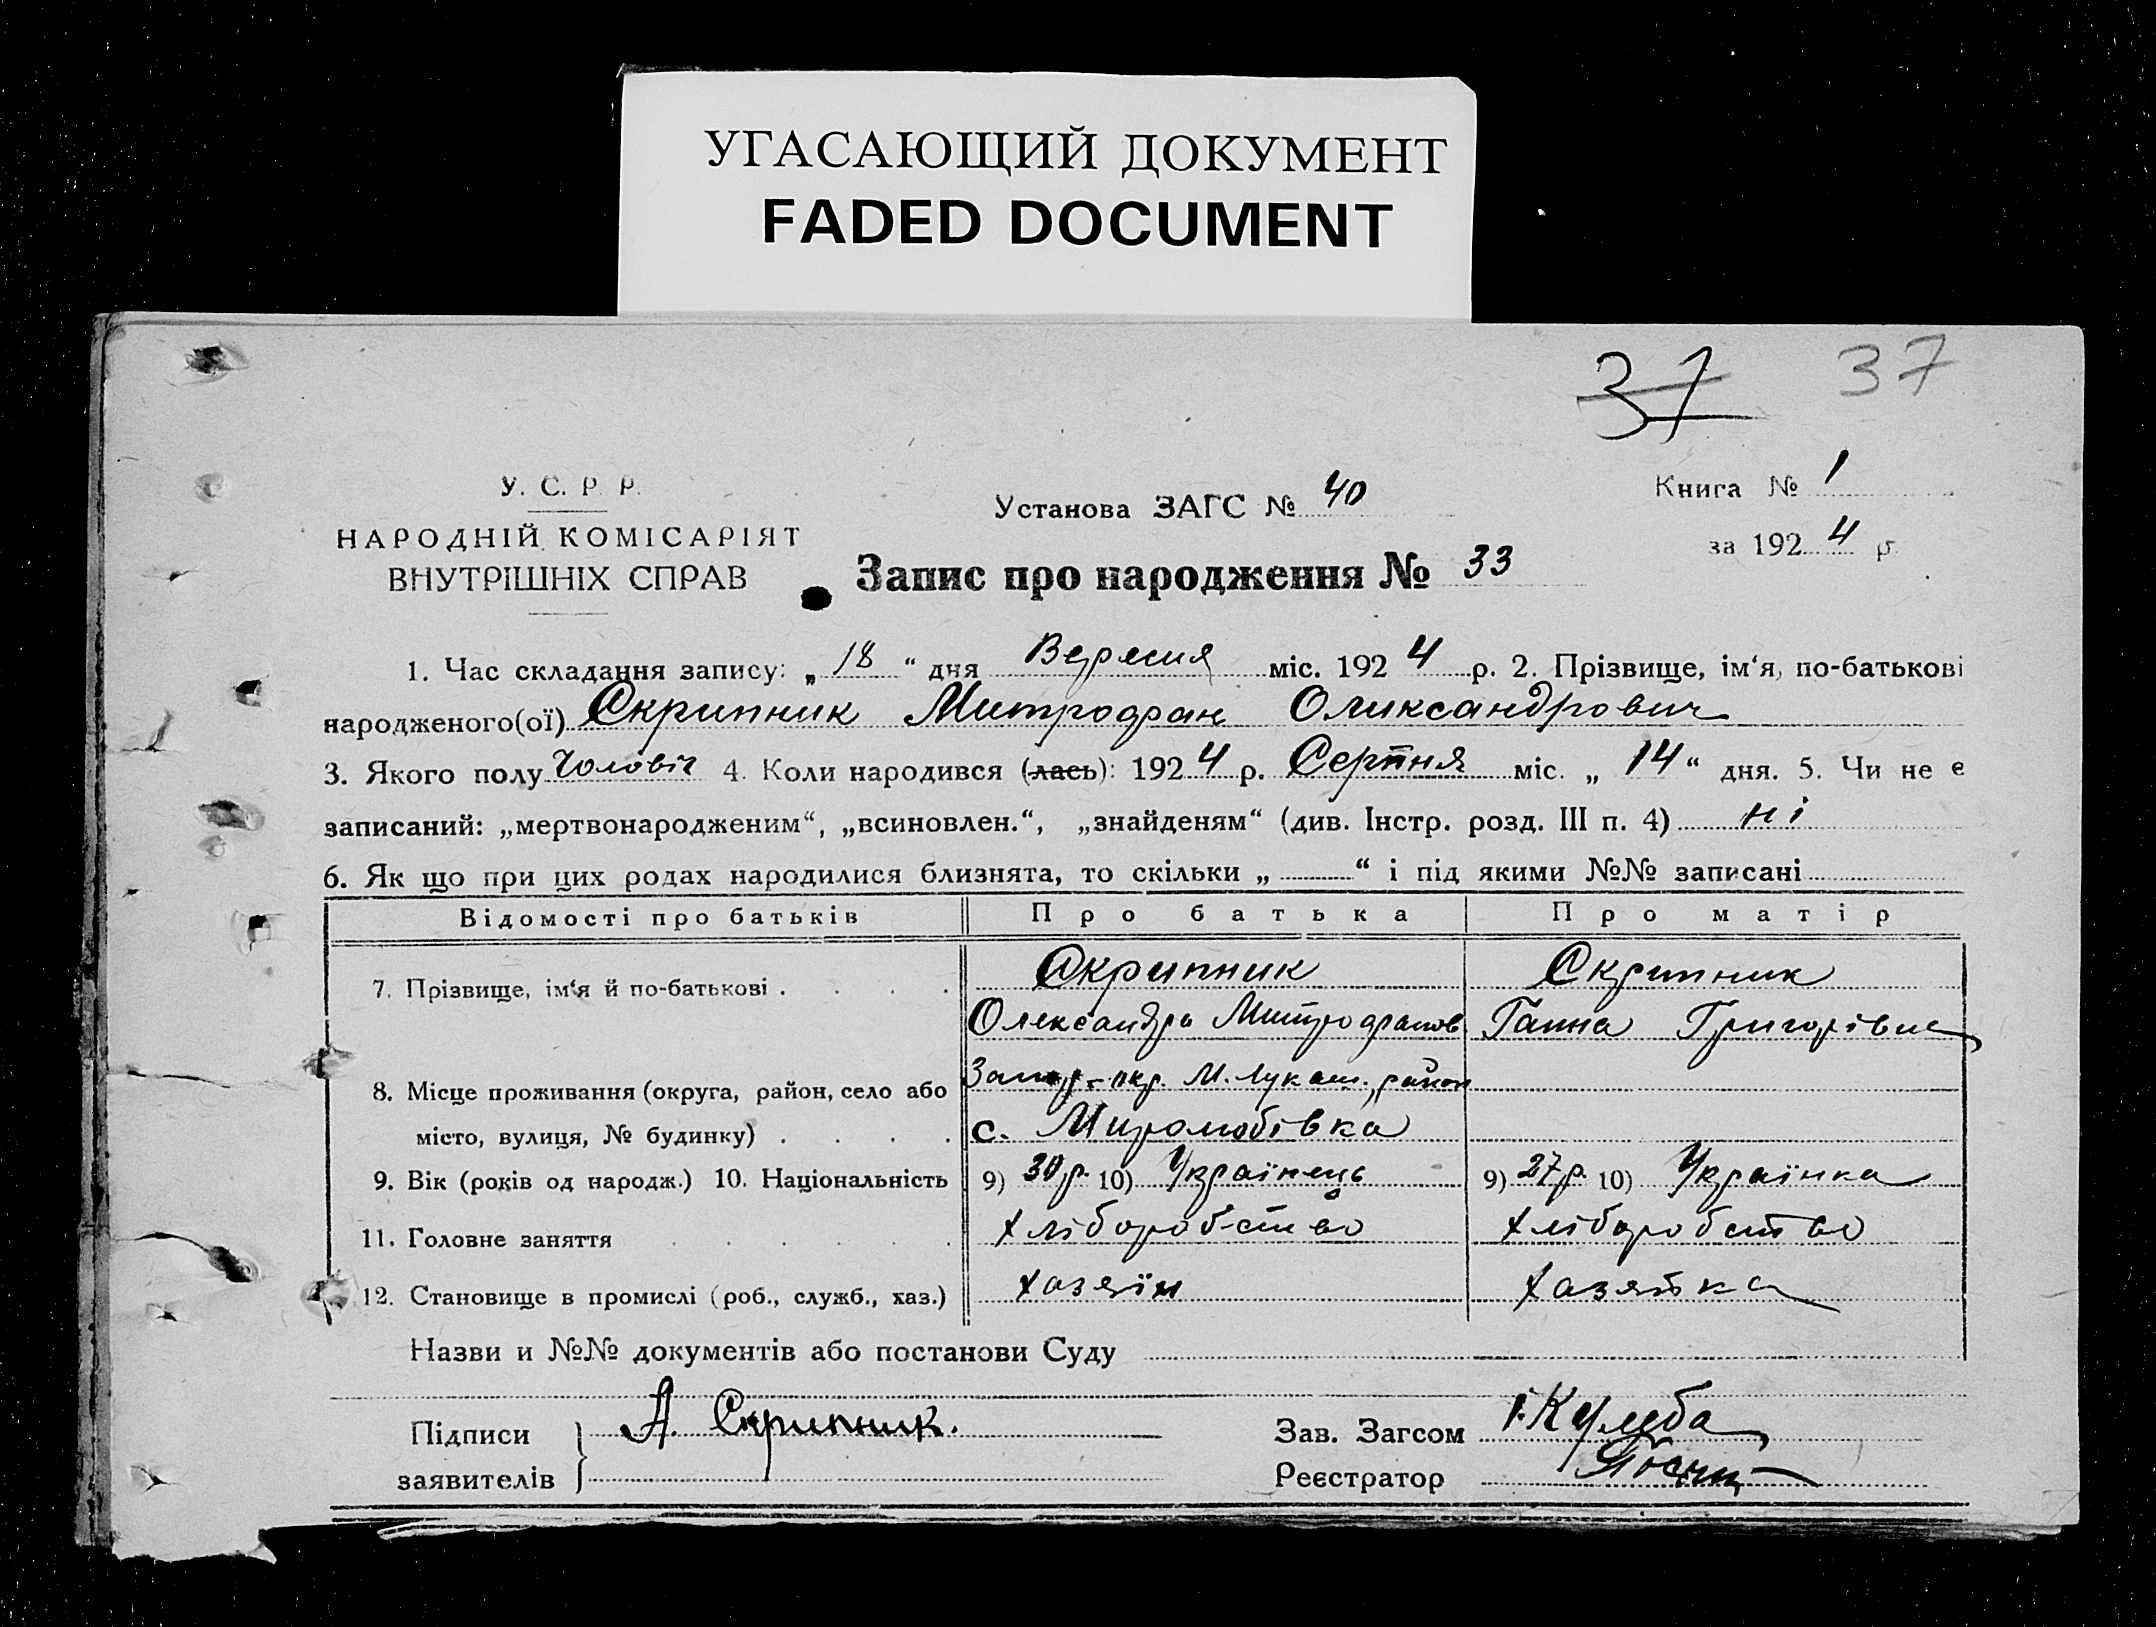 УГАСАЮЩИЙ ДОКУМЕНТ
FADED DOCUMENT
37 37
У. С. Р. Р.
НАРОДНІЙ КОМІСАРІЯТ
ВНУТРІШНІХ СПРАВ
Установа ЗАГС № 40
Книга № 1
за 1924 р.
Запис про народження № 33
1. Час складання запису: „18“ дня Вересня міс. 1924 р. 2. Прізвище, ім‘я, по-батькові
народженого(ої) Скрипник Митрофан Олександрович
3. Якого полу Чоловіч 4. Коли народився (лась): 1924 р. Серпня міс. „14“ дня. 5. Чи не є
записаний: „мертвонародженим“, „всиновлен.“, „знайденям“ (див. Інстр. розд. III п. 4) ні
6. Як що при цих родах народилися близнята, то скільки „ “ і під якими №№ записані
Відомості про батьків Про батька Про матір
7. Прізвище, ім‘я й по-батькові . . . . Скрипник Скрипник
Олександрь Митрофанов Ганна Григорівна
8. Місце проживання (округа, район, село або Запор. окр. М. Лукаш. район
місто, вулиця, № будинку) . . . . с. Миролюбівка
9. Вік (років од народж.) 10. Національність 9) 30 р. 10) Українець 9) 27 р. 10) Українка
11. Головне заняття . . . . . . Хліборобство Хліборобство
12. Становище в промислі (роб., служб., хаз.) Хазяїн Хазяйка
Назви и №№ документів або постанови Суду
Підписи
заявителів
А. Скрипник.
Зав. Загсом І. Кулеба
Реєстратор